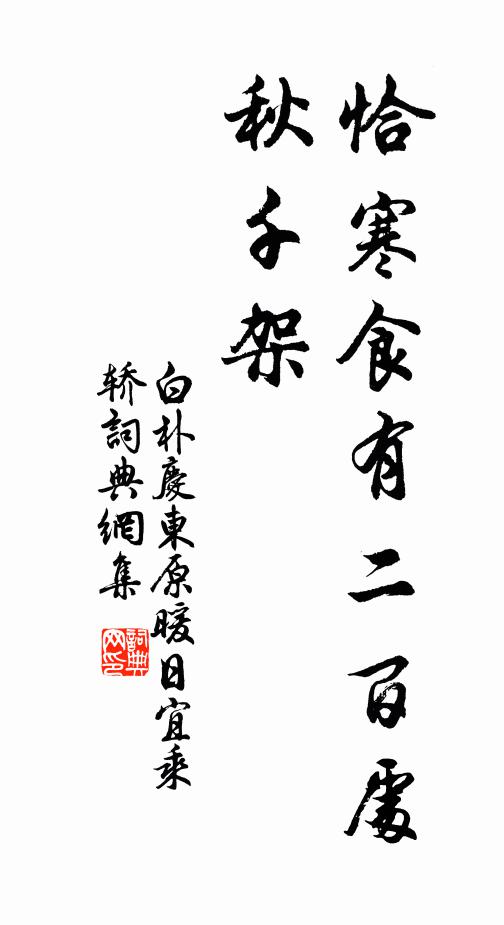 恰寒食有二百處
秋千架
白朴慶東原暖日宜乘
轿詞典網集
詞典网印